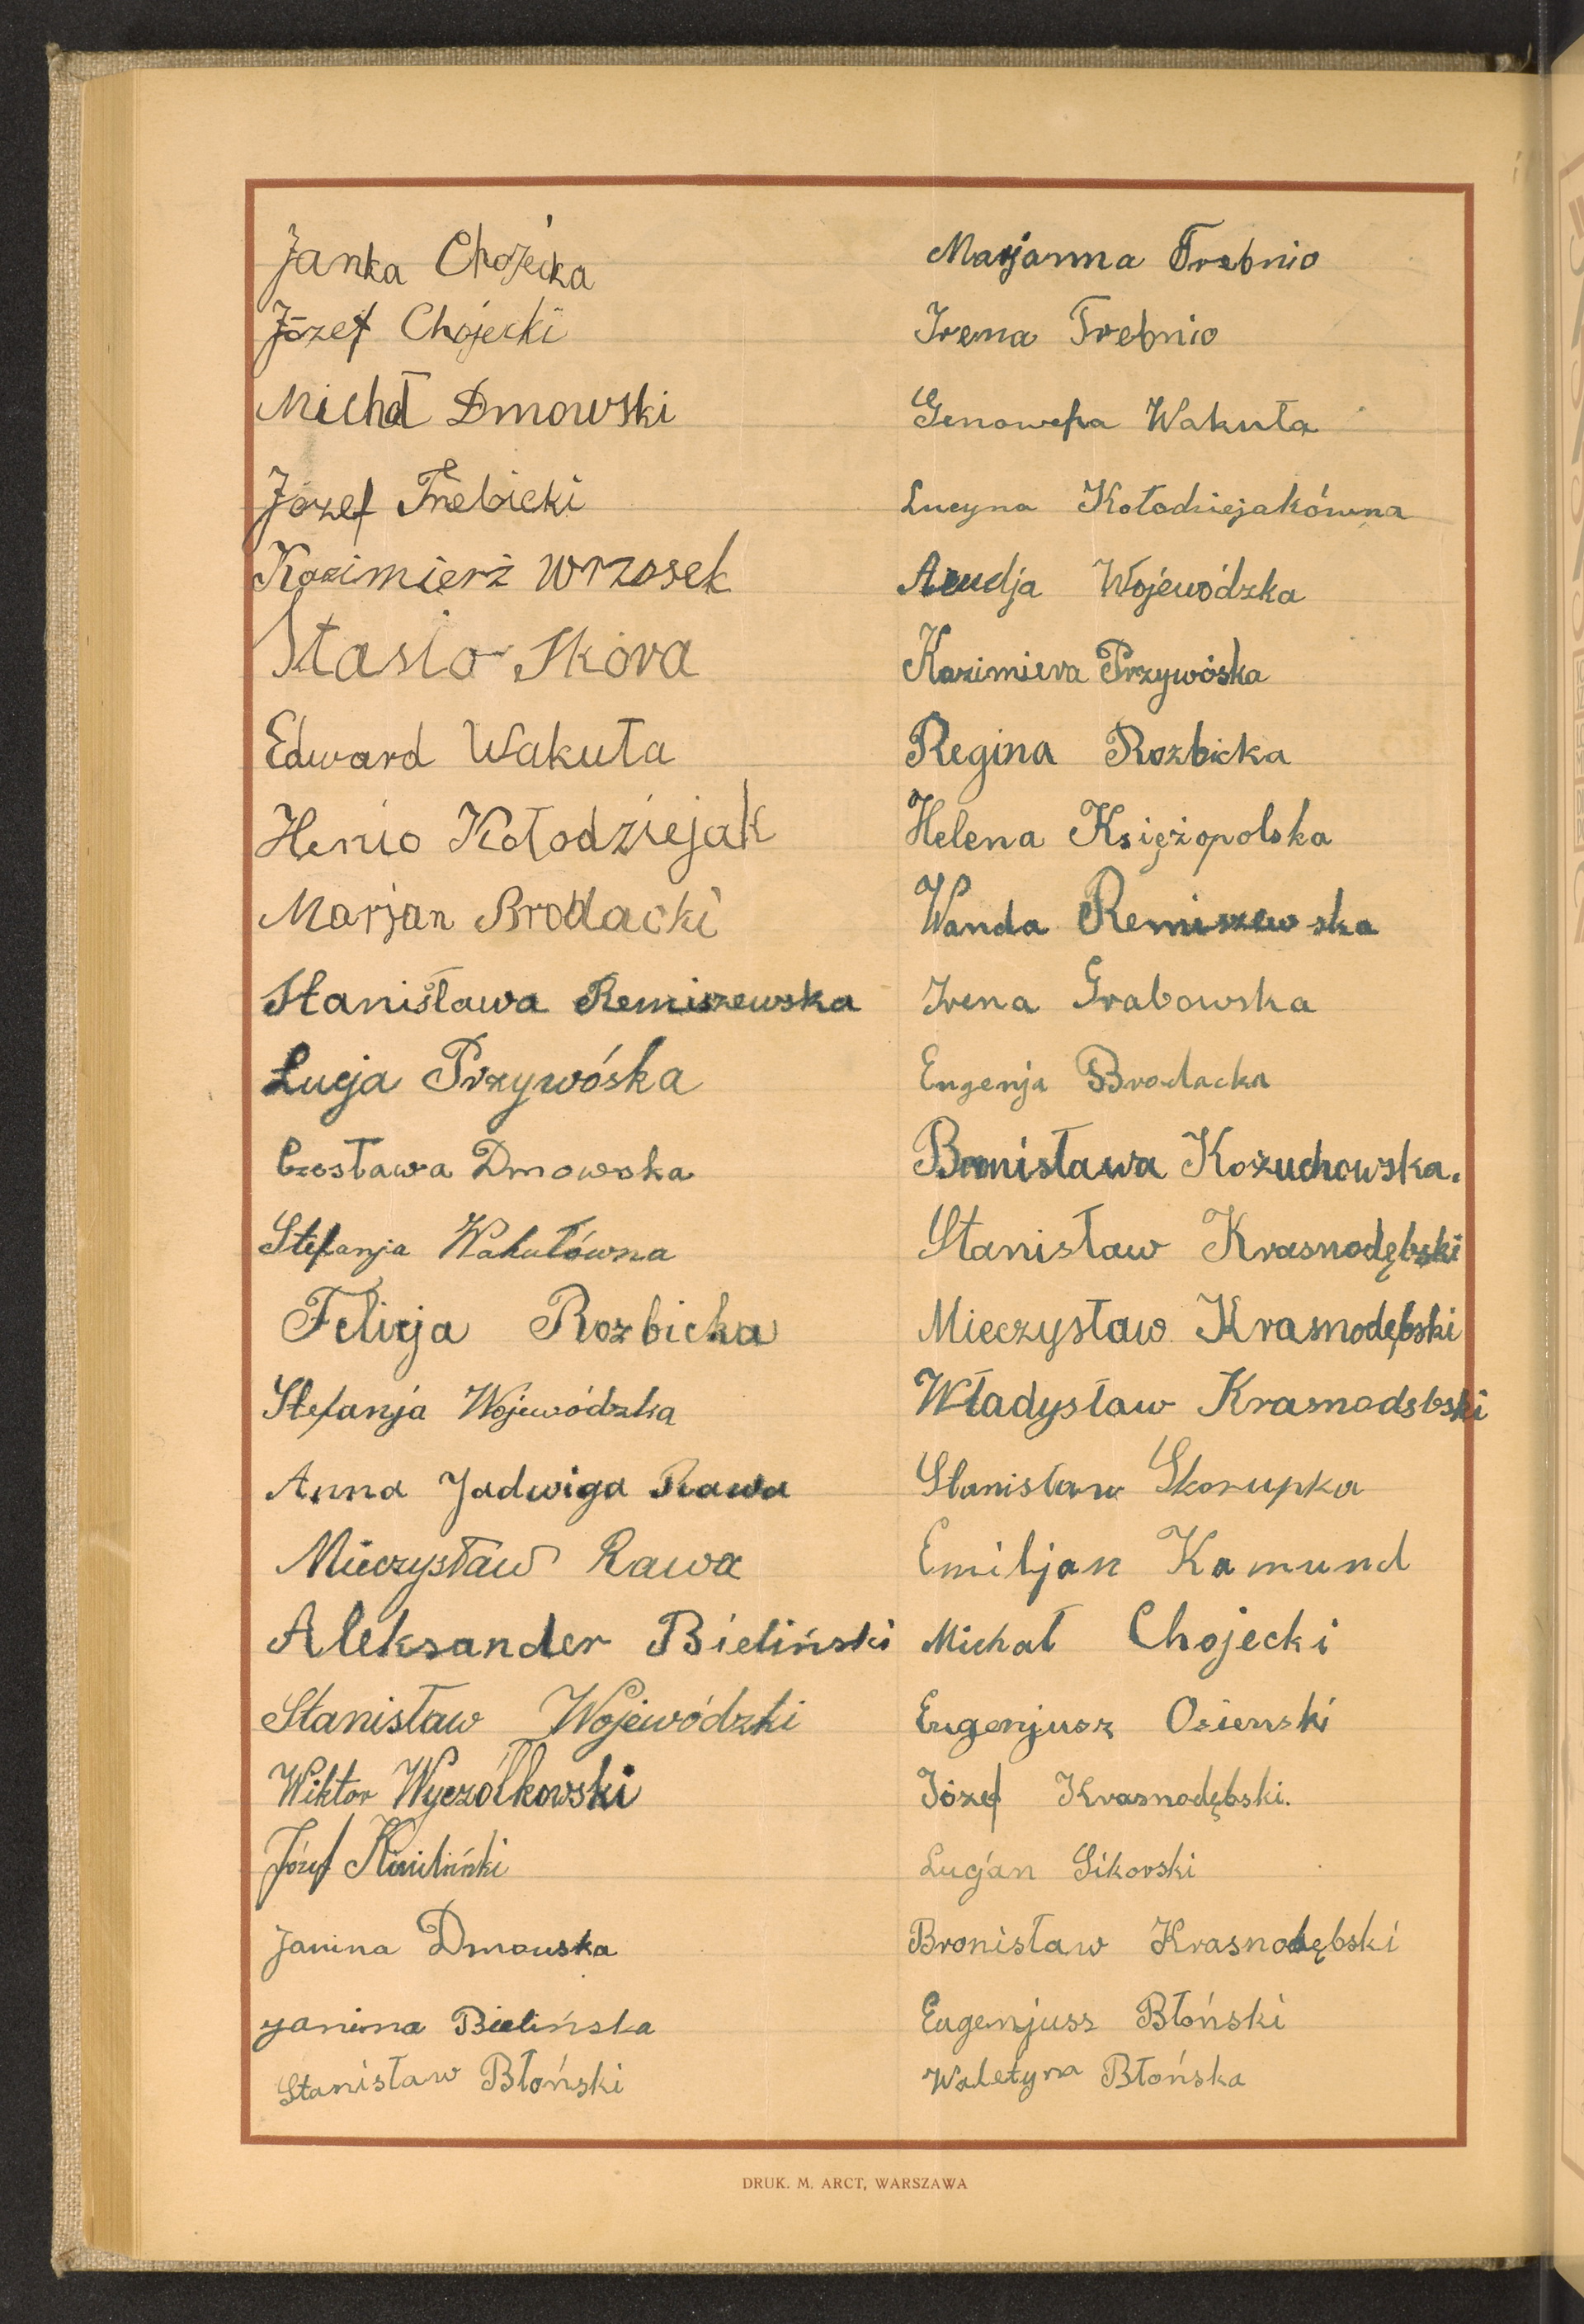 Janka Chojecka
Józef Chojecki
Michał Dmowski
Józef Trebicki
Kazimierz Wrzosek
Stasio Skóra
Edward Wakuła
Henio Kołodziejak
Marjan Brodacki
Stanisława Remiszewska
Lucja Przywóska
Czesława Dmowska
Stefanja Wakułówna
Felicja Rozbicka
Stefanja Wojewódzka
Anna Jadwiga Rawa
Mieczysław Rawa
Aleksander Bieliński
Stanisław Wojewódzki
Wiktor Wyczółkowski
Józef
Janina Dmowska
Janina Bielińska
Stanisław Błoński
Marjanna Trebnio
Irena Trebnio
Genowefa Wakuła
Lucyna Kołodziejakówna
Wojewódzka
Kazimiera Przywóska
Regina Rozbicka
Helena Księżopolska
Wanda Remiszewska
Irena Grabowska
Eugenja Brodacka
Bronisława Kożuchowska.
Stanisław Krasnodębski
Mieczysław Krasnodębski
Władysław Krasnodebski
Stanisław Skorupka
Emiljan Kamund
Michał Chojecki
Eugenjusz Osienski
Józef Krasnodębski.
Lucjan Sikorski
Bronisław Krasnodębski
Eugenjusz Błoński
Waletyna Błońska
DRUK. M. ARCT, WARSZAWA